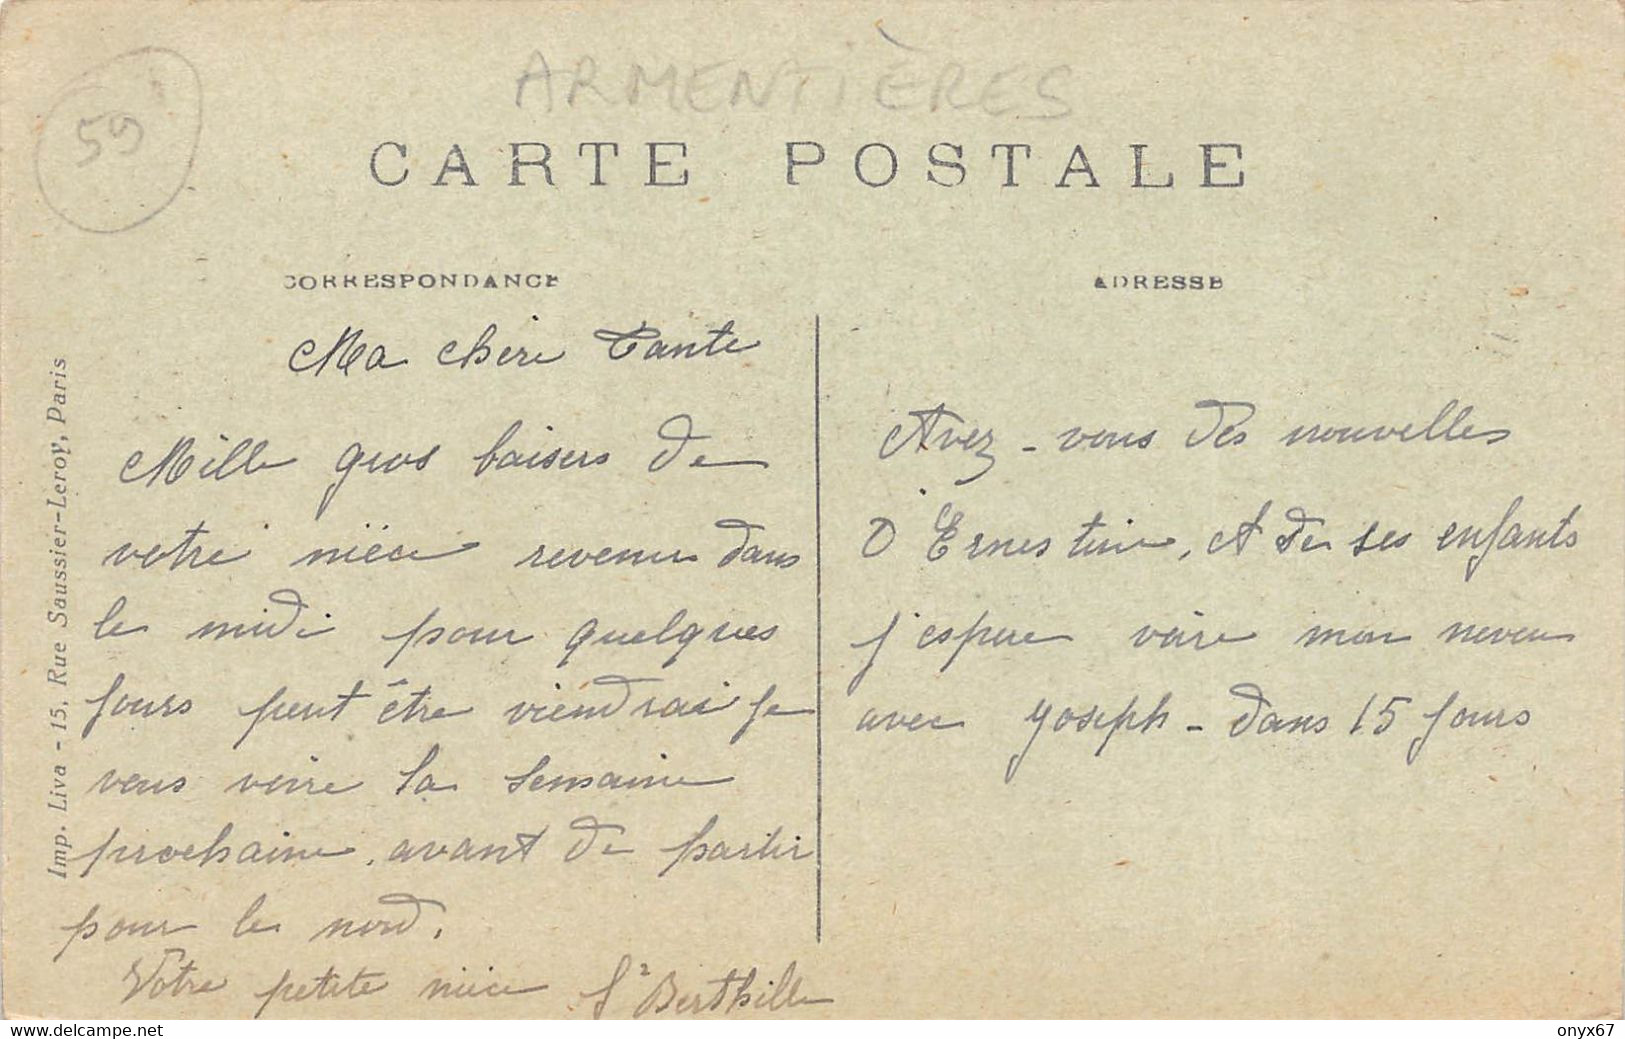 59
ARMENTIÈRES
CARTE POSTALE
CORRESPONDANCE
Ma chère Tante
Mille gros baisers de
votre nièce revenue dans
le midi pour quelques
jours peut être viendrai je
vous voire la semaine
prochaine, avant de partir
pour le nord.
Votre petite nièce Sr Berthille
ADRESSE
Avez-vous des nouvelles
d'Ernestine, et de ses enfants
j'espere voire mon neveu
avec Joseph - dans 15 jours
Imp. Liva - 15, Rue Saussier-Leroy, Paris
www.delcampe.net
onyx67